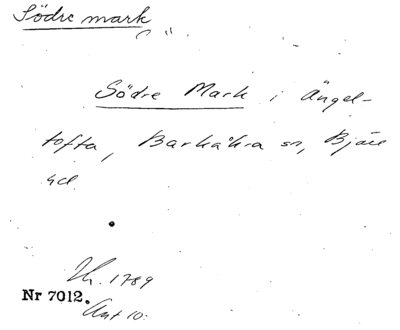 Södre mark
Södre Mark i Ängel-
tofta, Barkåkra sn, Bjäre
hd.
1789
Nr 7012.
Akt 10.